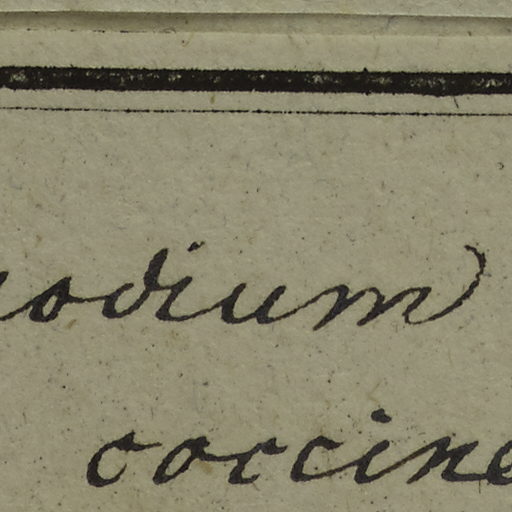 odium
coccine